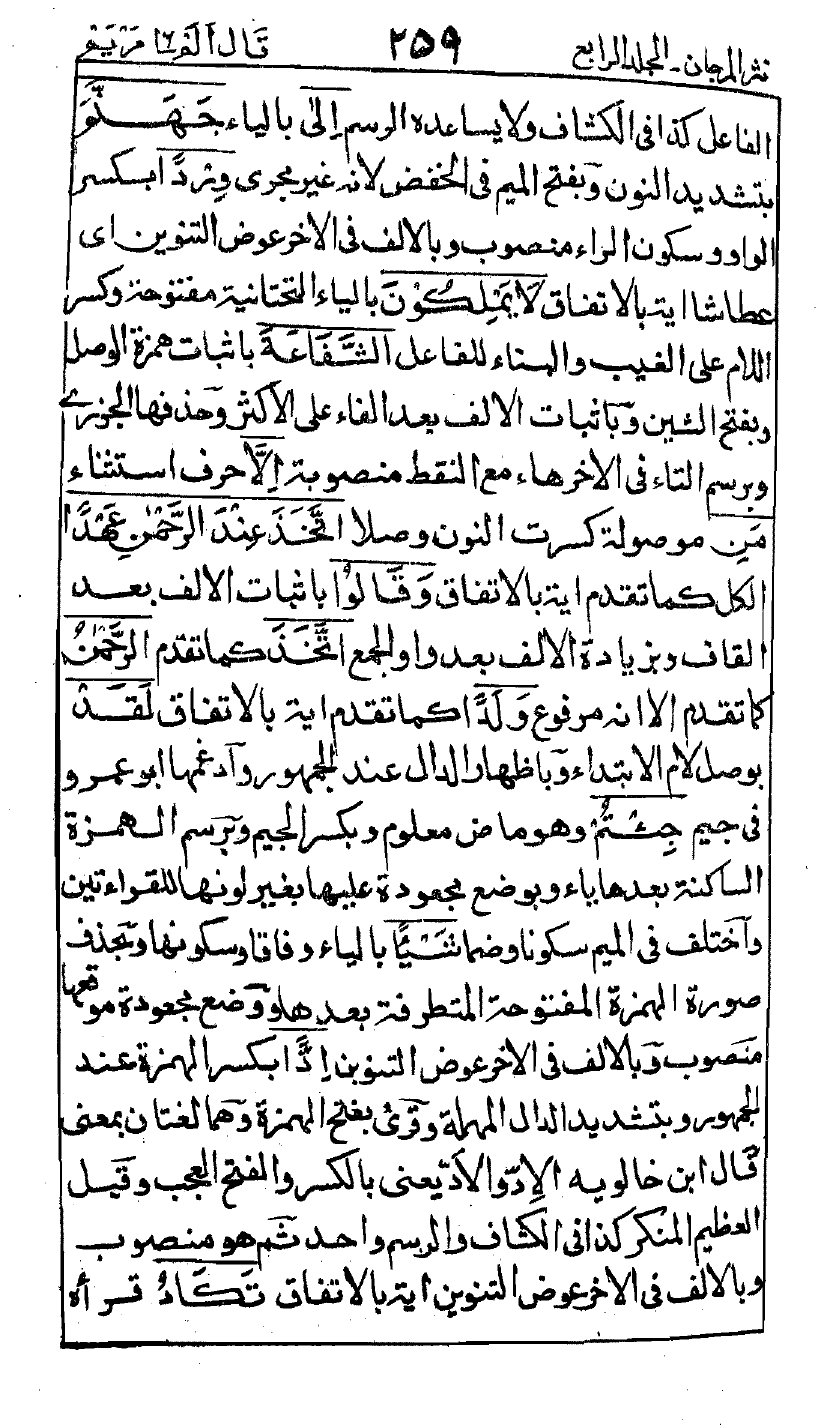 نثر المرجان ـ المجلد الرابع ٢٥٩ قال الم ١٦ مريم
الفاعل كذا فى الكشاف ولا يساعده الرسم إِلَىٰ بالياء جَهَنَّمَ
بتشديد النون وبفتح الميم فى الخفض لانه غير مجرى وِرْدًا بكسر
الواو وسكون الراء منصوب وبالالف فى الاخر عوض التنوين اى
عطاشا اية بالاتفاق لَا يَمْلِكُوْنَ بالياء التحتانية مفتوحة وكسر
اللام على الغيب والبناء للفاعل الشَّفَاعَةَ باثبات همزة الوصل
وبفتح الشين وباثبات الالف بعد الفاء على الاكثر وحذفها الجزرى
وبرسم التاء فى الاخر هاء مع النقط منصوبة اِلَّا حرف استثناء
مَنِ موصولة كسرت النون وصلا اتَّخَذَ عِنْدَ الرَّحْمٰنِ عَهْدًا
الكل كما تقدم اية بالاتفاق وَقَالُوا باثبات الالف بعد
القاف وبزيادة الالف بعد واو الجمع اتَّخَذَ كما تقدم الرَّحْمٰنُ
كما تقدم الا انه مرفوع وَلَدًا كما تقدم اية بالاتفاق لَقَدْ
بوصل لام الابتداء وباظهار الدال عند الجمهور وآدغمها ابو عمرو
فى جيم جِئْتُمْ وهو ماض معلوم وبكسر الجيم وبرسم الهمزة
الساكنة بعدها ياء وبوضع مجعودة عليها بغير لونها للقراءتين
وآختلف فى الميم سكونا وضما شَيْئًا بالياء وفاقا وسكونها وبحذف
صورة الهمزة المفتوحة المتطرفة بعدها ووضع مجعودة موقعها
منصوب وبالالف فى الاخر عوض التنوين اِدًّا بكسر الهمزة عند
الجمهور وبتشديد الدال المهملة وقرئ بفتح الهمزة وهما لغتان بمعنى
قال ابن خالويه الاِدّ والاَدّ يعنى بالكسر والفتح العجب وقيل
العظيم المنكر كذا فى الكشاف والرسم واحد ثم هو منصوب
وبالالف فى الاخر عوض التنوين اية بالاتفاق تَكَادُ قرأه